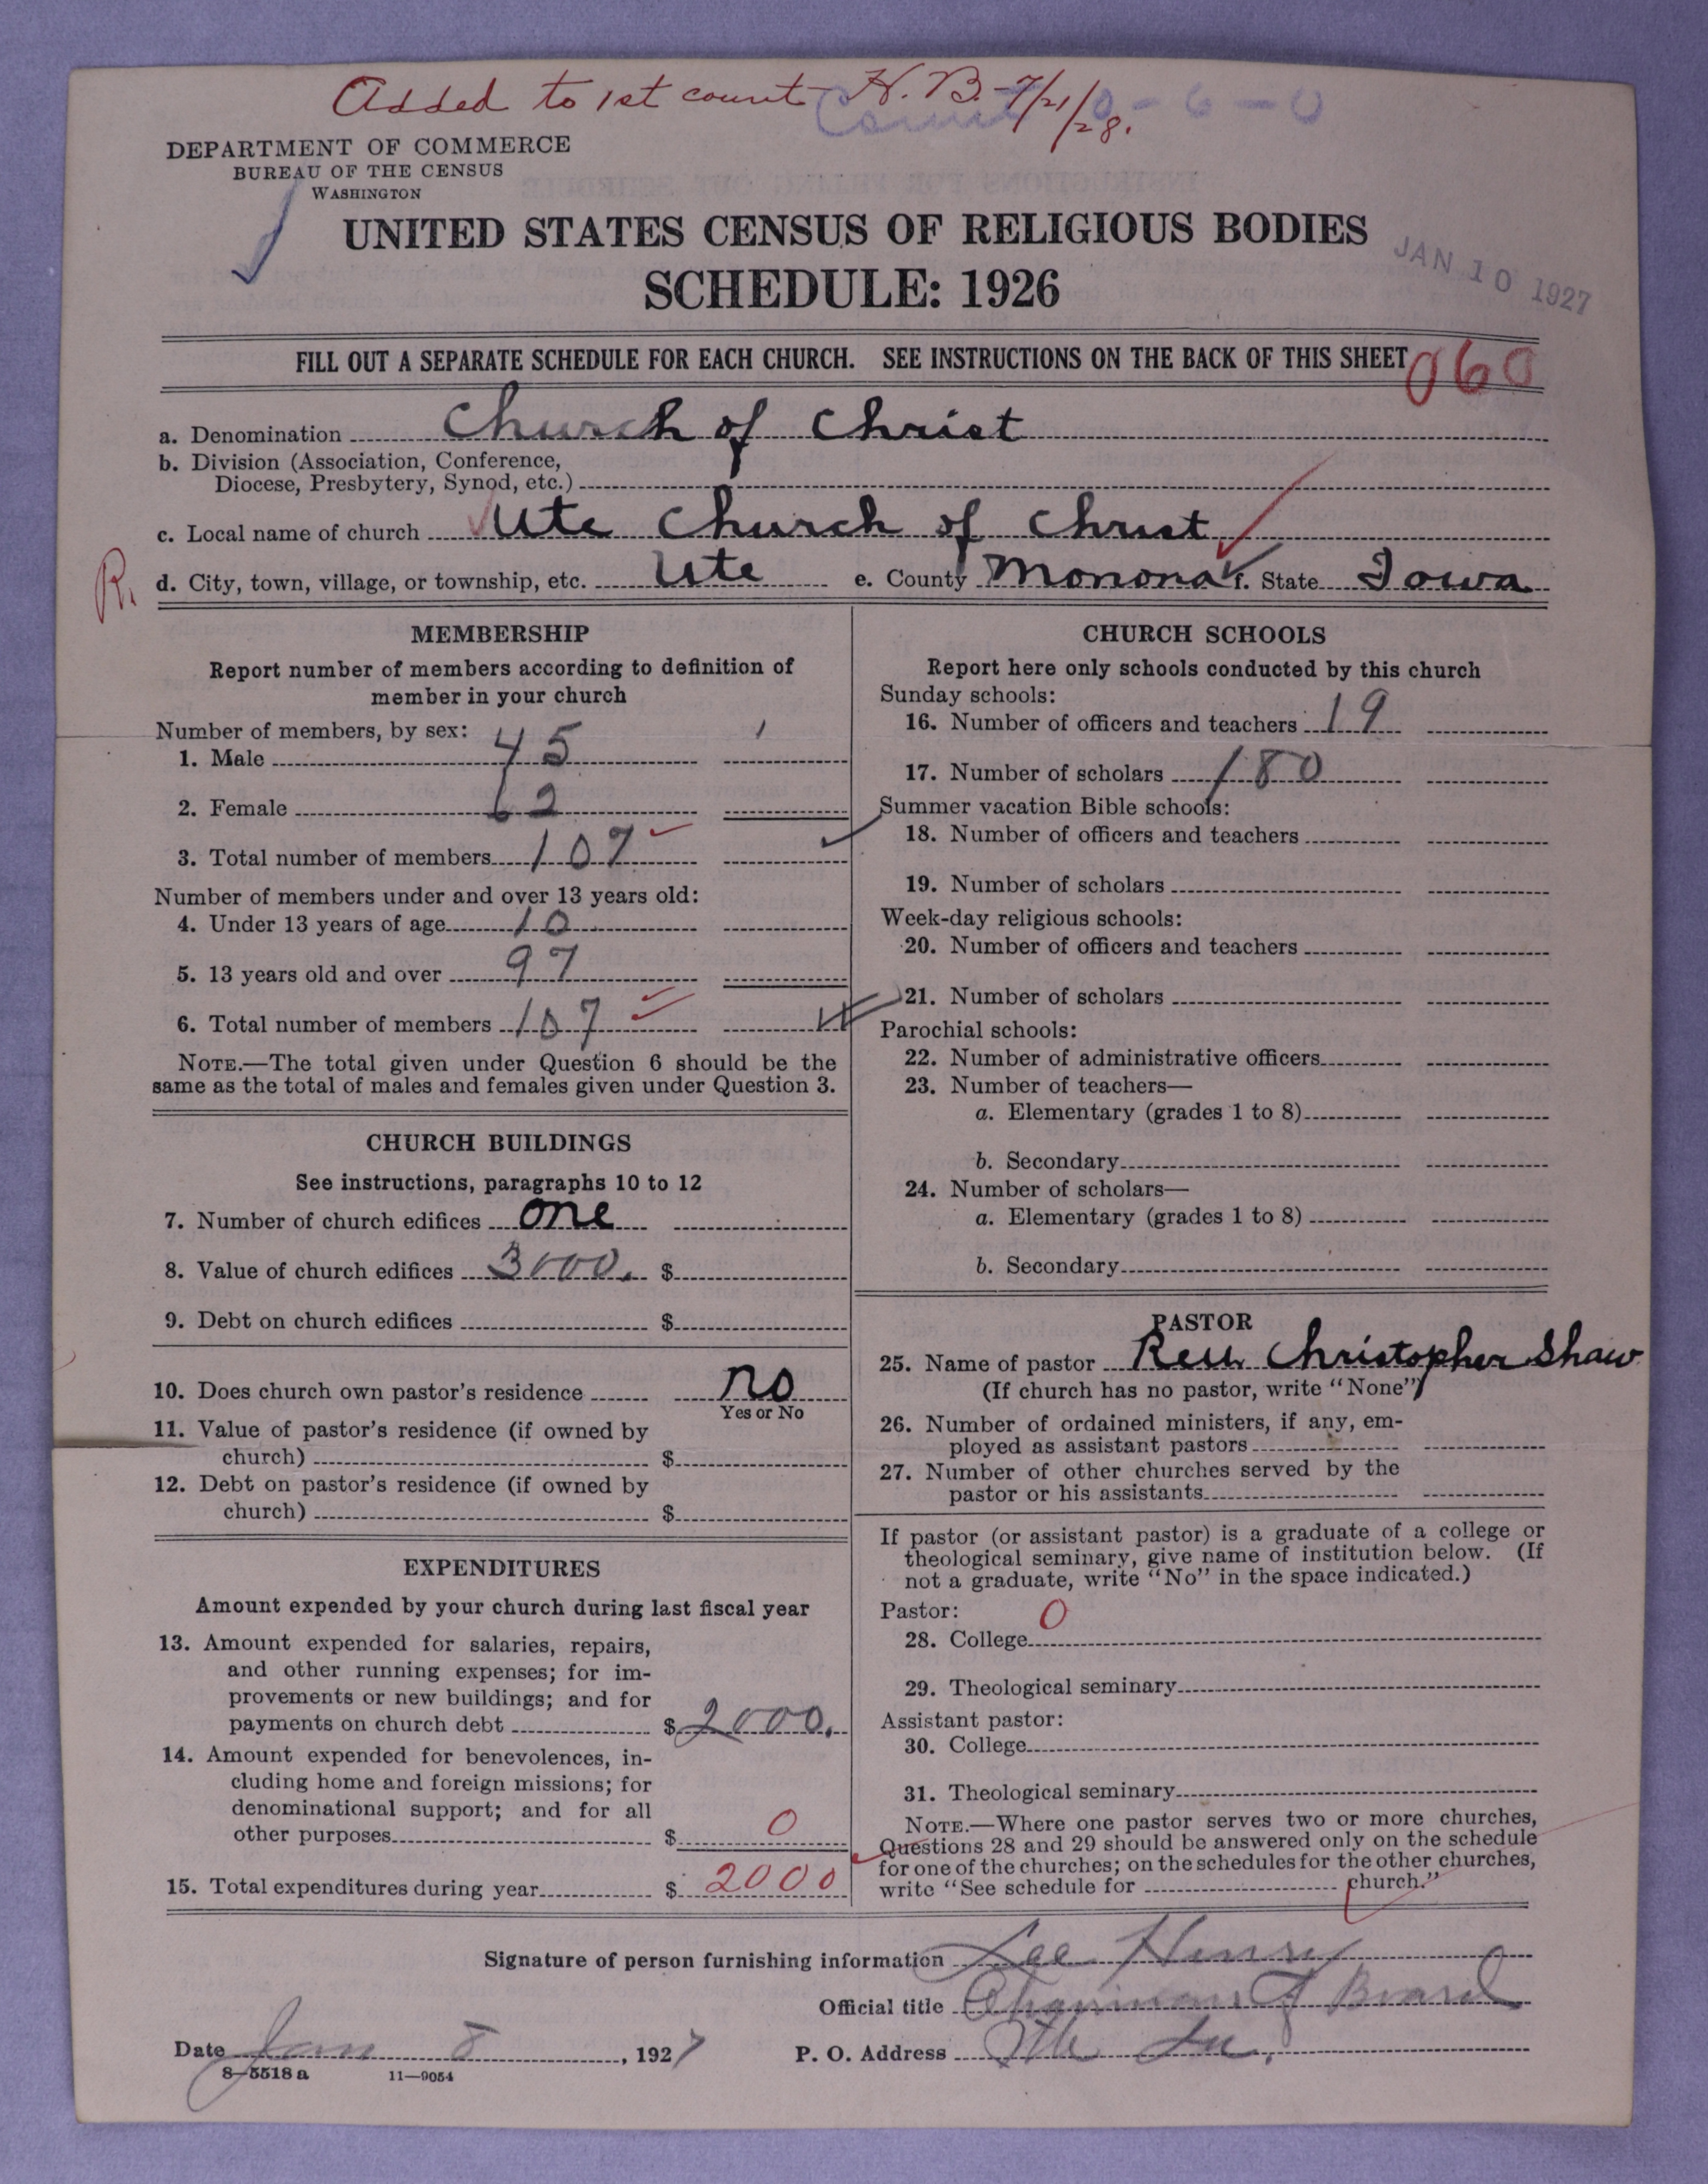 Added to 1st count H. B. 7/21/28.
DEPARTMENT OF COMMERCE
BUREAU OF THE CENSUS
WASHINGTON
UNITED STATES CENSUS OF RELIGIOUS BODIES
SCHEDULE: 1926
JAN 10 1927
FILL OUT A SEPARATE SCHEDULE FOR EACH CHURCH. SEE INSTRUCTIONS ON THE BACK OF THIS SHEET
060
a. Denomination Church of Christ
b. Division (Association, Conference,
Diocese, Presbytery, Synod, etc.)
c. Local name of church Ute Church of Christ
R. d. City, town, village, or township, etc. Ute e. County Monona f. State Iowa
MEMBERSHIP
Report number of members according to definition of
member in your church
Number of members, by sex:
1. Male 45
2. Female 62
3. Total number of members 107
Number of members under and over 13 years old:
4. Under 13 years of age 10
5. 13 years old and over 97
6. Total number of members 107
NOTE.—The total given under Question 6 should be the
same as the total of males and females given under Question 3.
CHURCH BUILDINGS
See instructions, paragraphs 10 to 12
7. Number of church edifices one
8. Value of church edifices 3000. $
9. Debt on church edifices $
10. Does church own pastor's residence no
Yes or No
11. Value of pastor's residence (if owned by
church) $
12. Debt on pastor's residence (if owned by
church) $
EXPENDITURES
Amount expended by your church during last fiscal year
13. Amount expended for salaries, repairs,
and other running expenses; for im-
provements or new buildings; and for
payments on church debt $ 2000.
14. Amount expended for benevolences, in-
cluding home and foreign missions; for
denominational support; and for all
other purposes $ 0
15. Total expenditures during year $ 2000
CHURCH SCHOOLS
Report here only schools conducted by this church
Sunday schools:
16. Number of officers and teachers 19
17. Number of scholars 180
Summer vacation Bible schools:
18. Number of officers and teachers
19. Number of scholars
Week-day religious schools:
20. Number of officers and teachers
21. Number of scholars
Parochial schools:
22. Number of administrative officers
23. Number of teachers—
a. Elementary (grades 1 to 8)
b. Secondary
24. Number of scholars—
a. Elementary (grades 1 to 8)
b. Secondary
PASTOR
25. Name of pastor Rev. Christopher Shaw
(If church has no pastor, write "None")
26. Number of ordained ministers, if any, em-
ployed as assistant pastors
27. Number of other churches served by the
pastor or his assistants
If pastor (or assistant pastor) is a graduate of a college or
theological seminary, give name of institution below. (If
not a graduate, write "No" in the space indicated.)
Pastor: 0
28. College
29. Theological seminary
Assistant pastor:
30. College
31. Theological seminary
NOTE.—Where one pastor serves two or more churches,
Questions 28 and 29 should be answered only on the schedule
for one of the churches; on the schedules for the other churches,
write "See schedule for church."
Signature of person furnishing information Lee Henry
Official title Chairman of Board
Date Jan 8, 1927 P. O. Address Ute Ia.
8—5518 a 11—9054